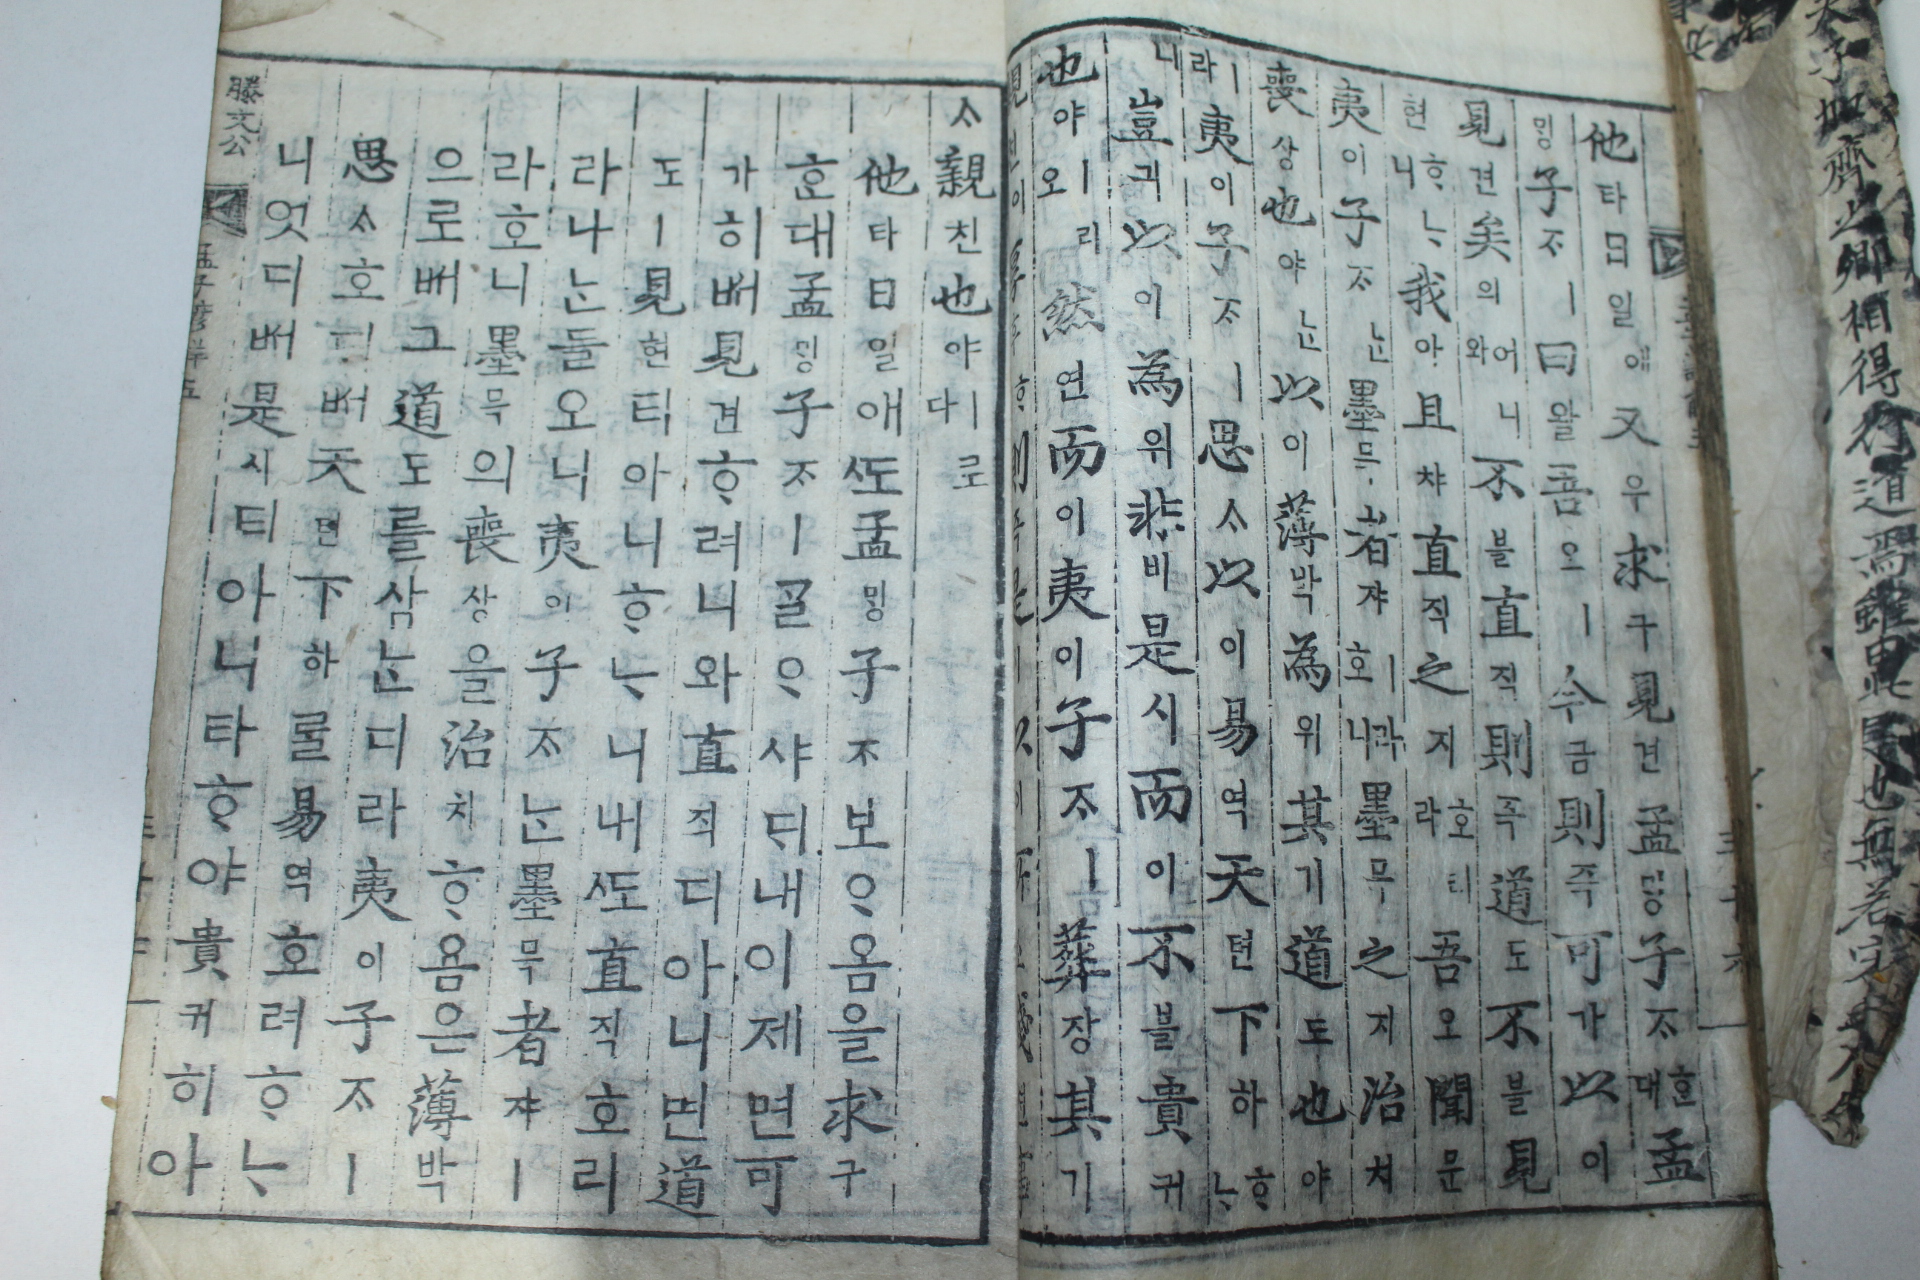 子加齊之卿相得行道焉雖由此
也無若宋
他타日일애又우求구見견孟ᄆᆡᆼ子ᄌᆞᄒᆞᆫ대孟
ᄆᆡᆼ子ᄌᆞㅣ曰왈吾오ㅣ今금則즉可가以이
見견矣의어니와不블直직則즉道도不블見
현ᄒᆞᄂᆞ니我아且챠直직之지호리라吾오聞문
夷이子ᄌᆞᄂᆞᆫ墨믁者쟈ㅣ라호니墨믁之지治치
喪상也야ᄂᆞᆫ以이薄박爲위其기道도也야
ㅣ라夷이子ᄌᆞㅣ思ᄉᆞ以이易역天텬下하ᄒᆞᄂᆞ
니豈긔以이爲위非비是시而이不블貴귀
也야ㅣ리오然연而이夷이子ᄌᆞㅣ葬장其기
ᄉᆞ親친也야ㅣ로다
他타日일애ᄯᅩ孟ᄆᆡᆼ子ᄌᆞ보ᄋᆞ옴을求구
ᄒᆞᆫ대孟ᄆᆡᆼ子ᄌᆞㅣᄀᆞᆯᄋᆞ샤ᄃᆡ내이제면可
가히ᄡᅥ見견ᄒᆞ려니와直직디아니면道
도ㅣ見현티아니ᄒᆞᄂᆞ니내ᄯᅩ直직호리
라나ᄂᆞᆫ들오니夷이子ᄌᆞᄂᆞᆫ墨믁者쟈ㅣ
라호니墨믁의喪상을治치ᄒᆞ욤은薄박
으로ᄡᅥ그道도를삼ᄂᆞᆫ디라夷이子ᄌᆞㅣ
思ᄉᆞ호ᄃᆡᄡᅥ天텬下하ᄅᆞᆯ易역호려ᄒᆞᄂᆞ
니엇디ᄡᅥ是시티아니타ᄒᆞ야貴귀히아
滕文公
孟子諺解五